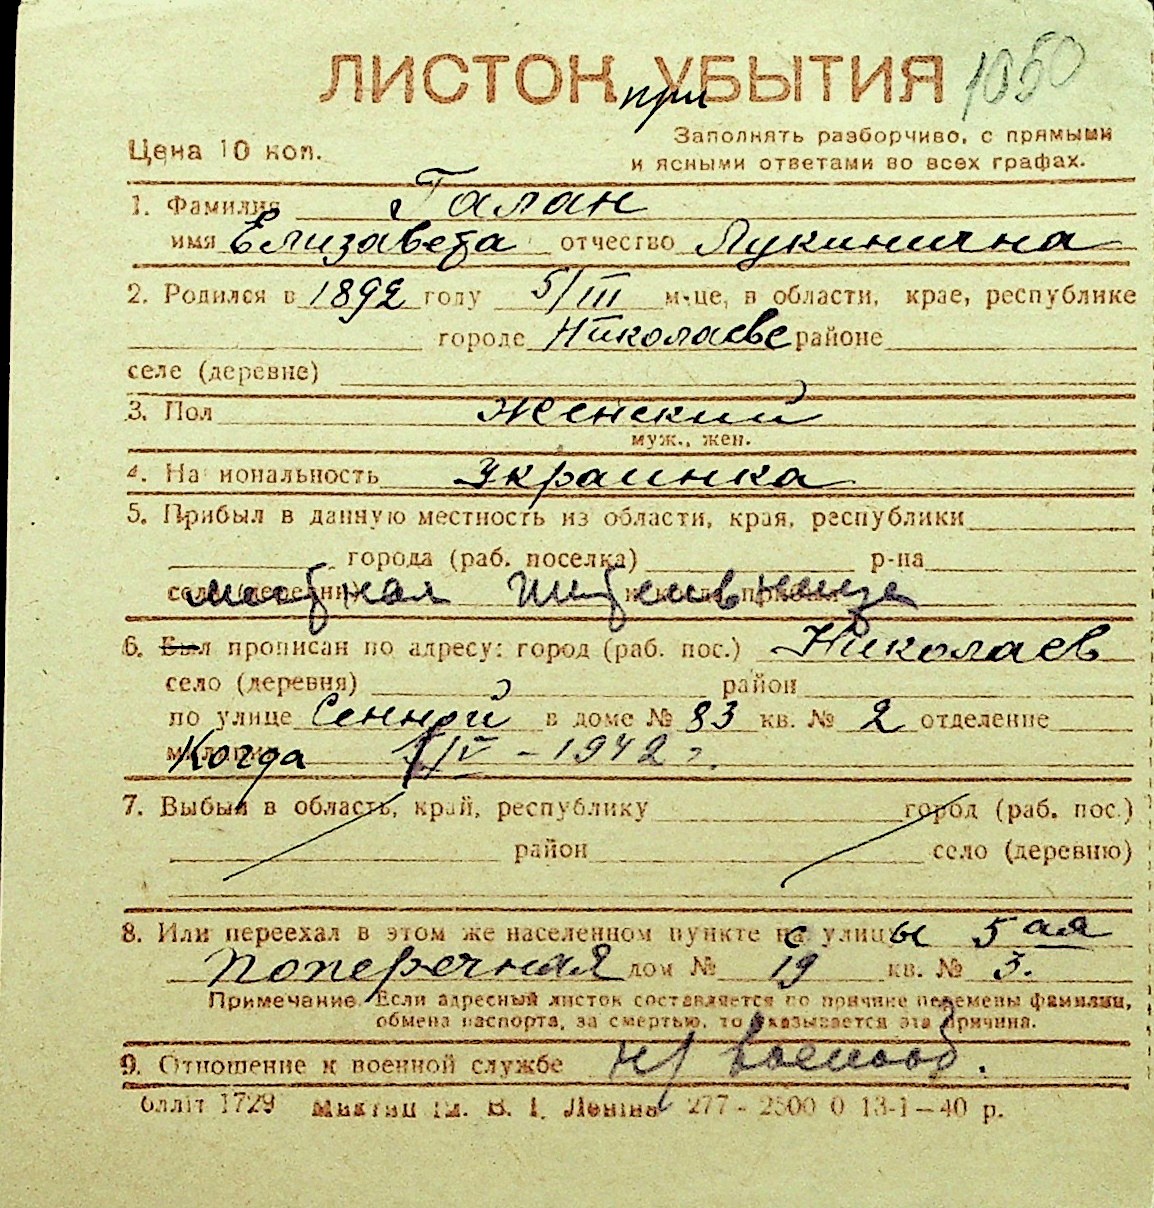 ЛИСТОК УБЫТИЯ 1050
при
Цена 10 коп.
Заполнять разборчиво, с прямыми
и ясными ответами во всех графах.
1. Фамилия Галан
имя Елизавета отчество Лукинична
2. Родился в 1892 году 5/III м-це, в области, крае, республике
городе Николаеве районе
селе (деревне)
3. Пол женский
муж., жен.
4. На иональность Украинка
5. Прибыл в данную местность из области, края, республики
города (раб. поселка) р-на
местная
6. Был прописан по адресу: город (раб. пос.) Николаев
село (деревня) район
по улице Сенной в доме № 83 кв. № 2 отделение
Когда 1/IV - 1942 г.
7. Выбыл в область, край, республику город (раб. пос.)
район село (деревню)
8. Или переехал в этом же населенном пункте с улицы 5 ая
поперечная дом № 19 кв. № 3.
Примечание. Если адресный листок составляется по причине перемены фамилии,
обмена паспорта, за смертью, то указывается эта причина.
9. Отношение к военной службе н/военооб.
Обллiт 1729 В. I. Ленiна 277 - 2500 0 13-1-40 р.